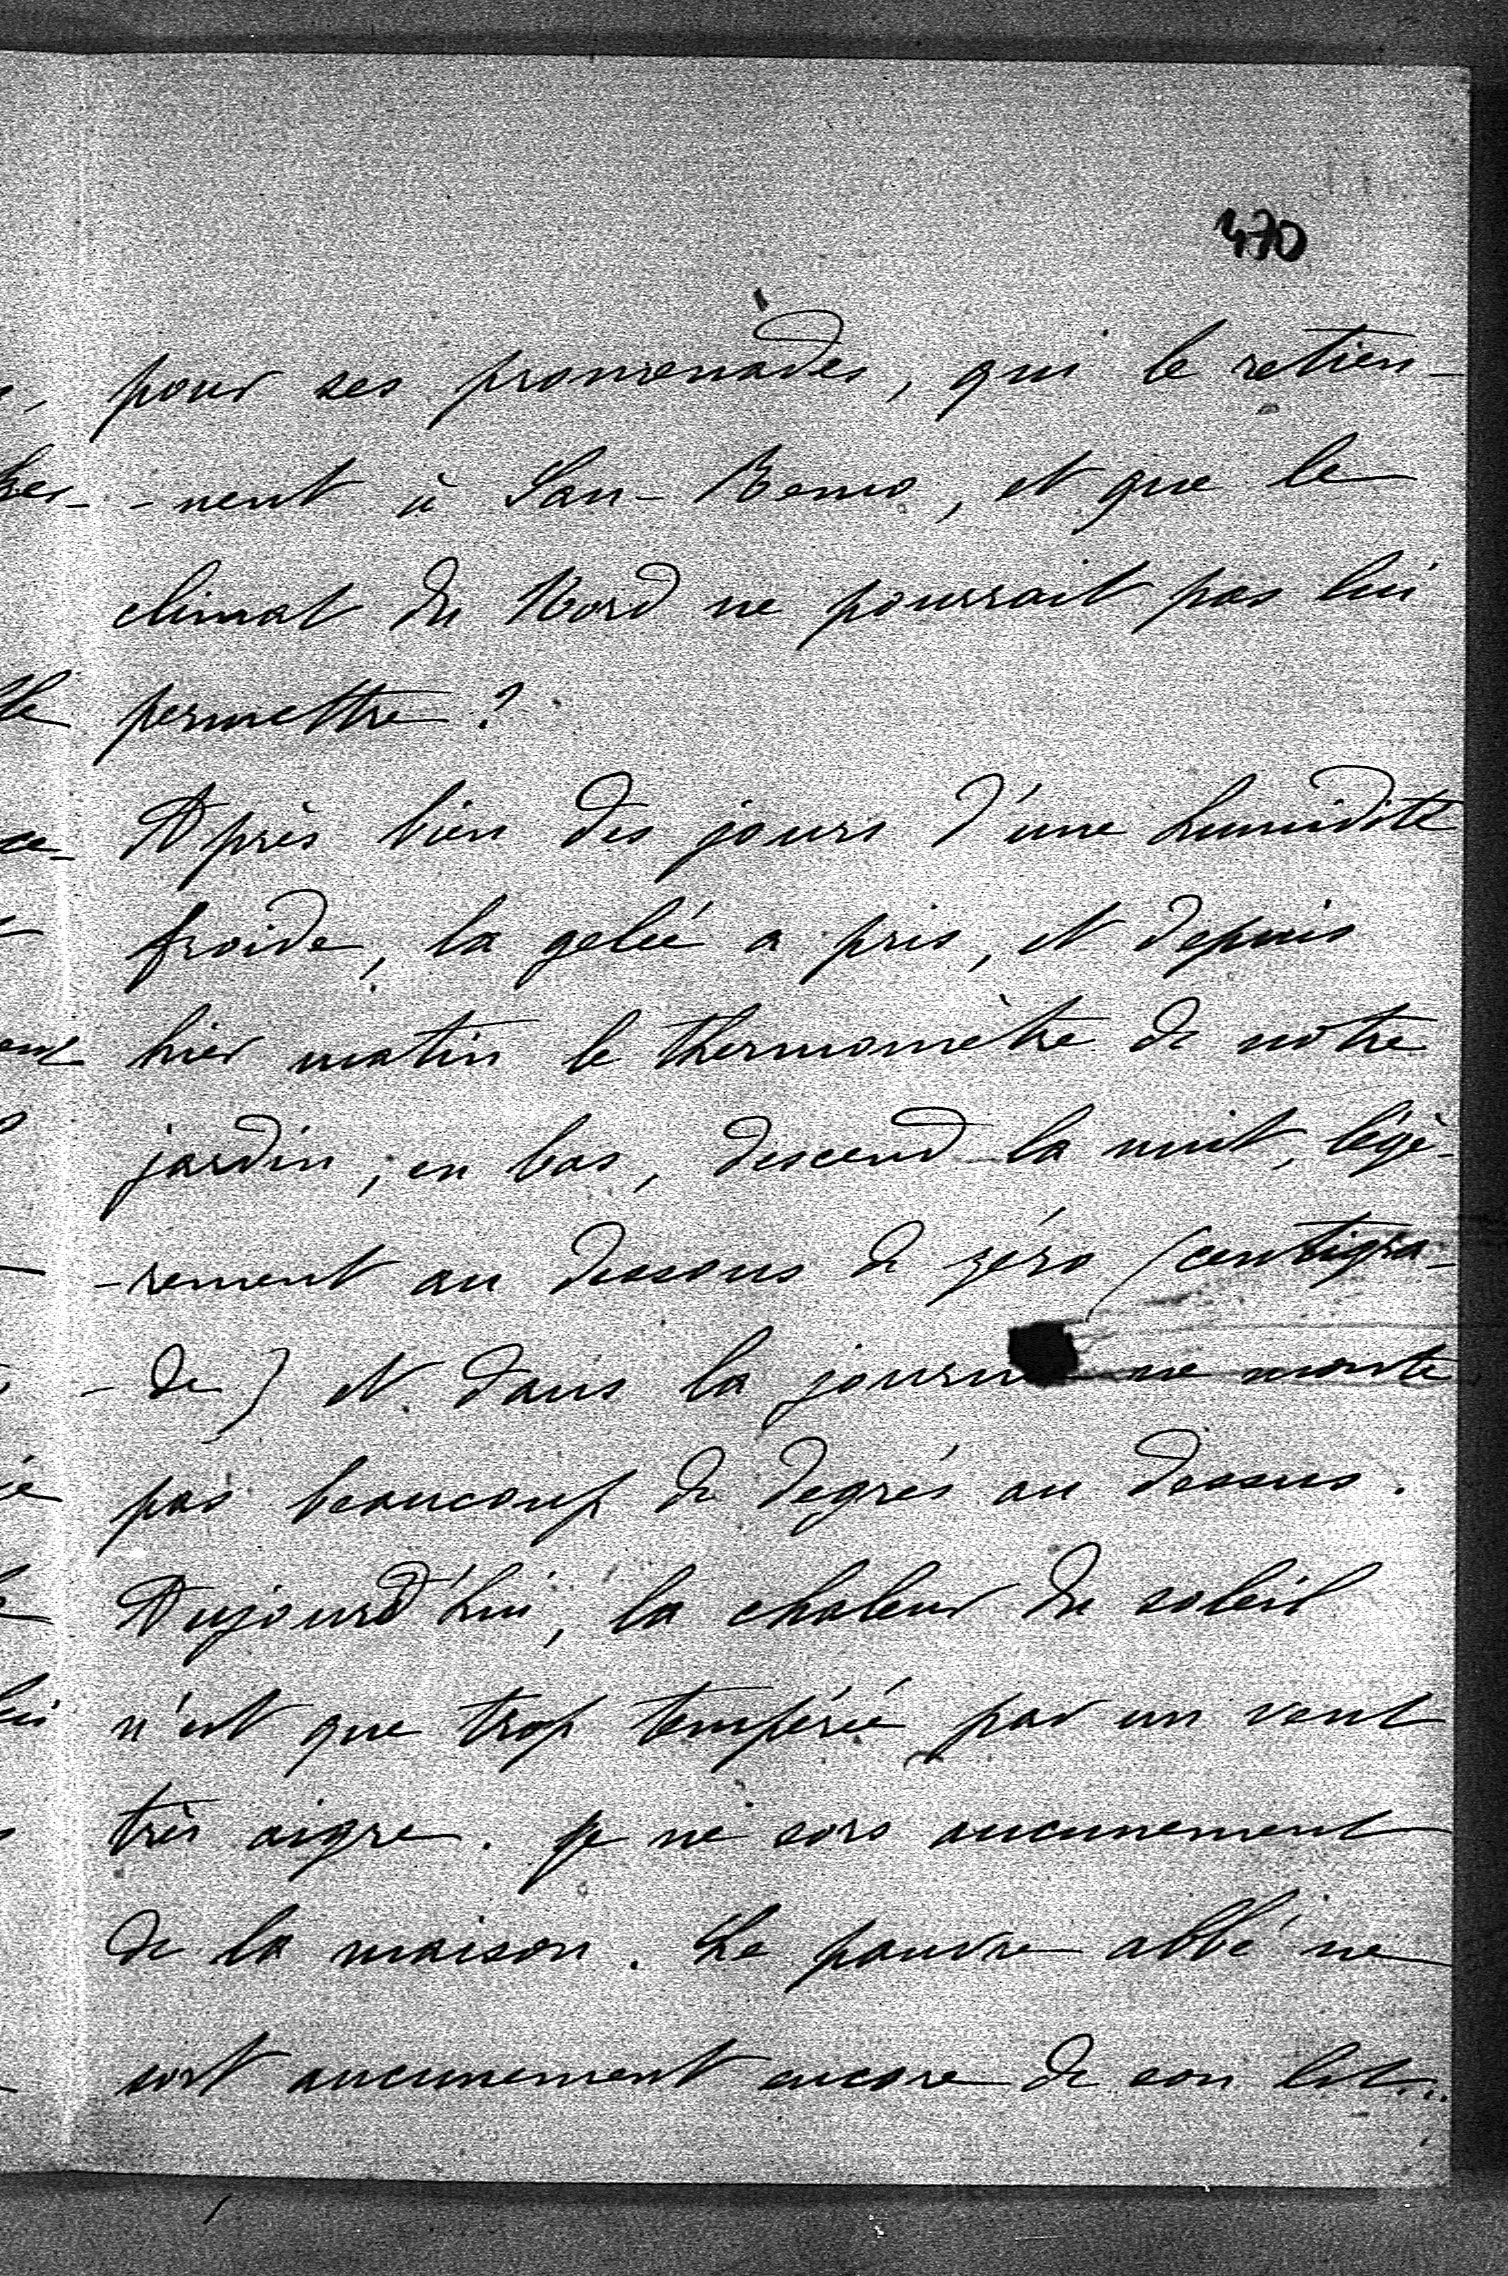 470
pour ses promenades, qui le retien-
-nent à San-Remo, et que le
climat du Nord ne pourrait pas lui
permettre ?
Après bien des jours d'une humidité
froide, la gelée a pris, et depuis
hier matin le thermomètre de notre
jardin, en bas, descend la nuit, légè-
-rement au dessous de zéro (centigra-
-de) et dans la journ ne monte
pas beaucoup de degrés au dessus.
Aujourd'hui, la chaleur du soleil
n'est que trop tempérée par un vent
très aigre. Je ne sors aucunement
de la maison. Le pauvre abbé ne
sort aucunement encore de son lit...